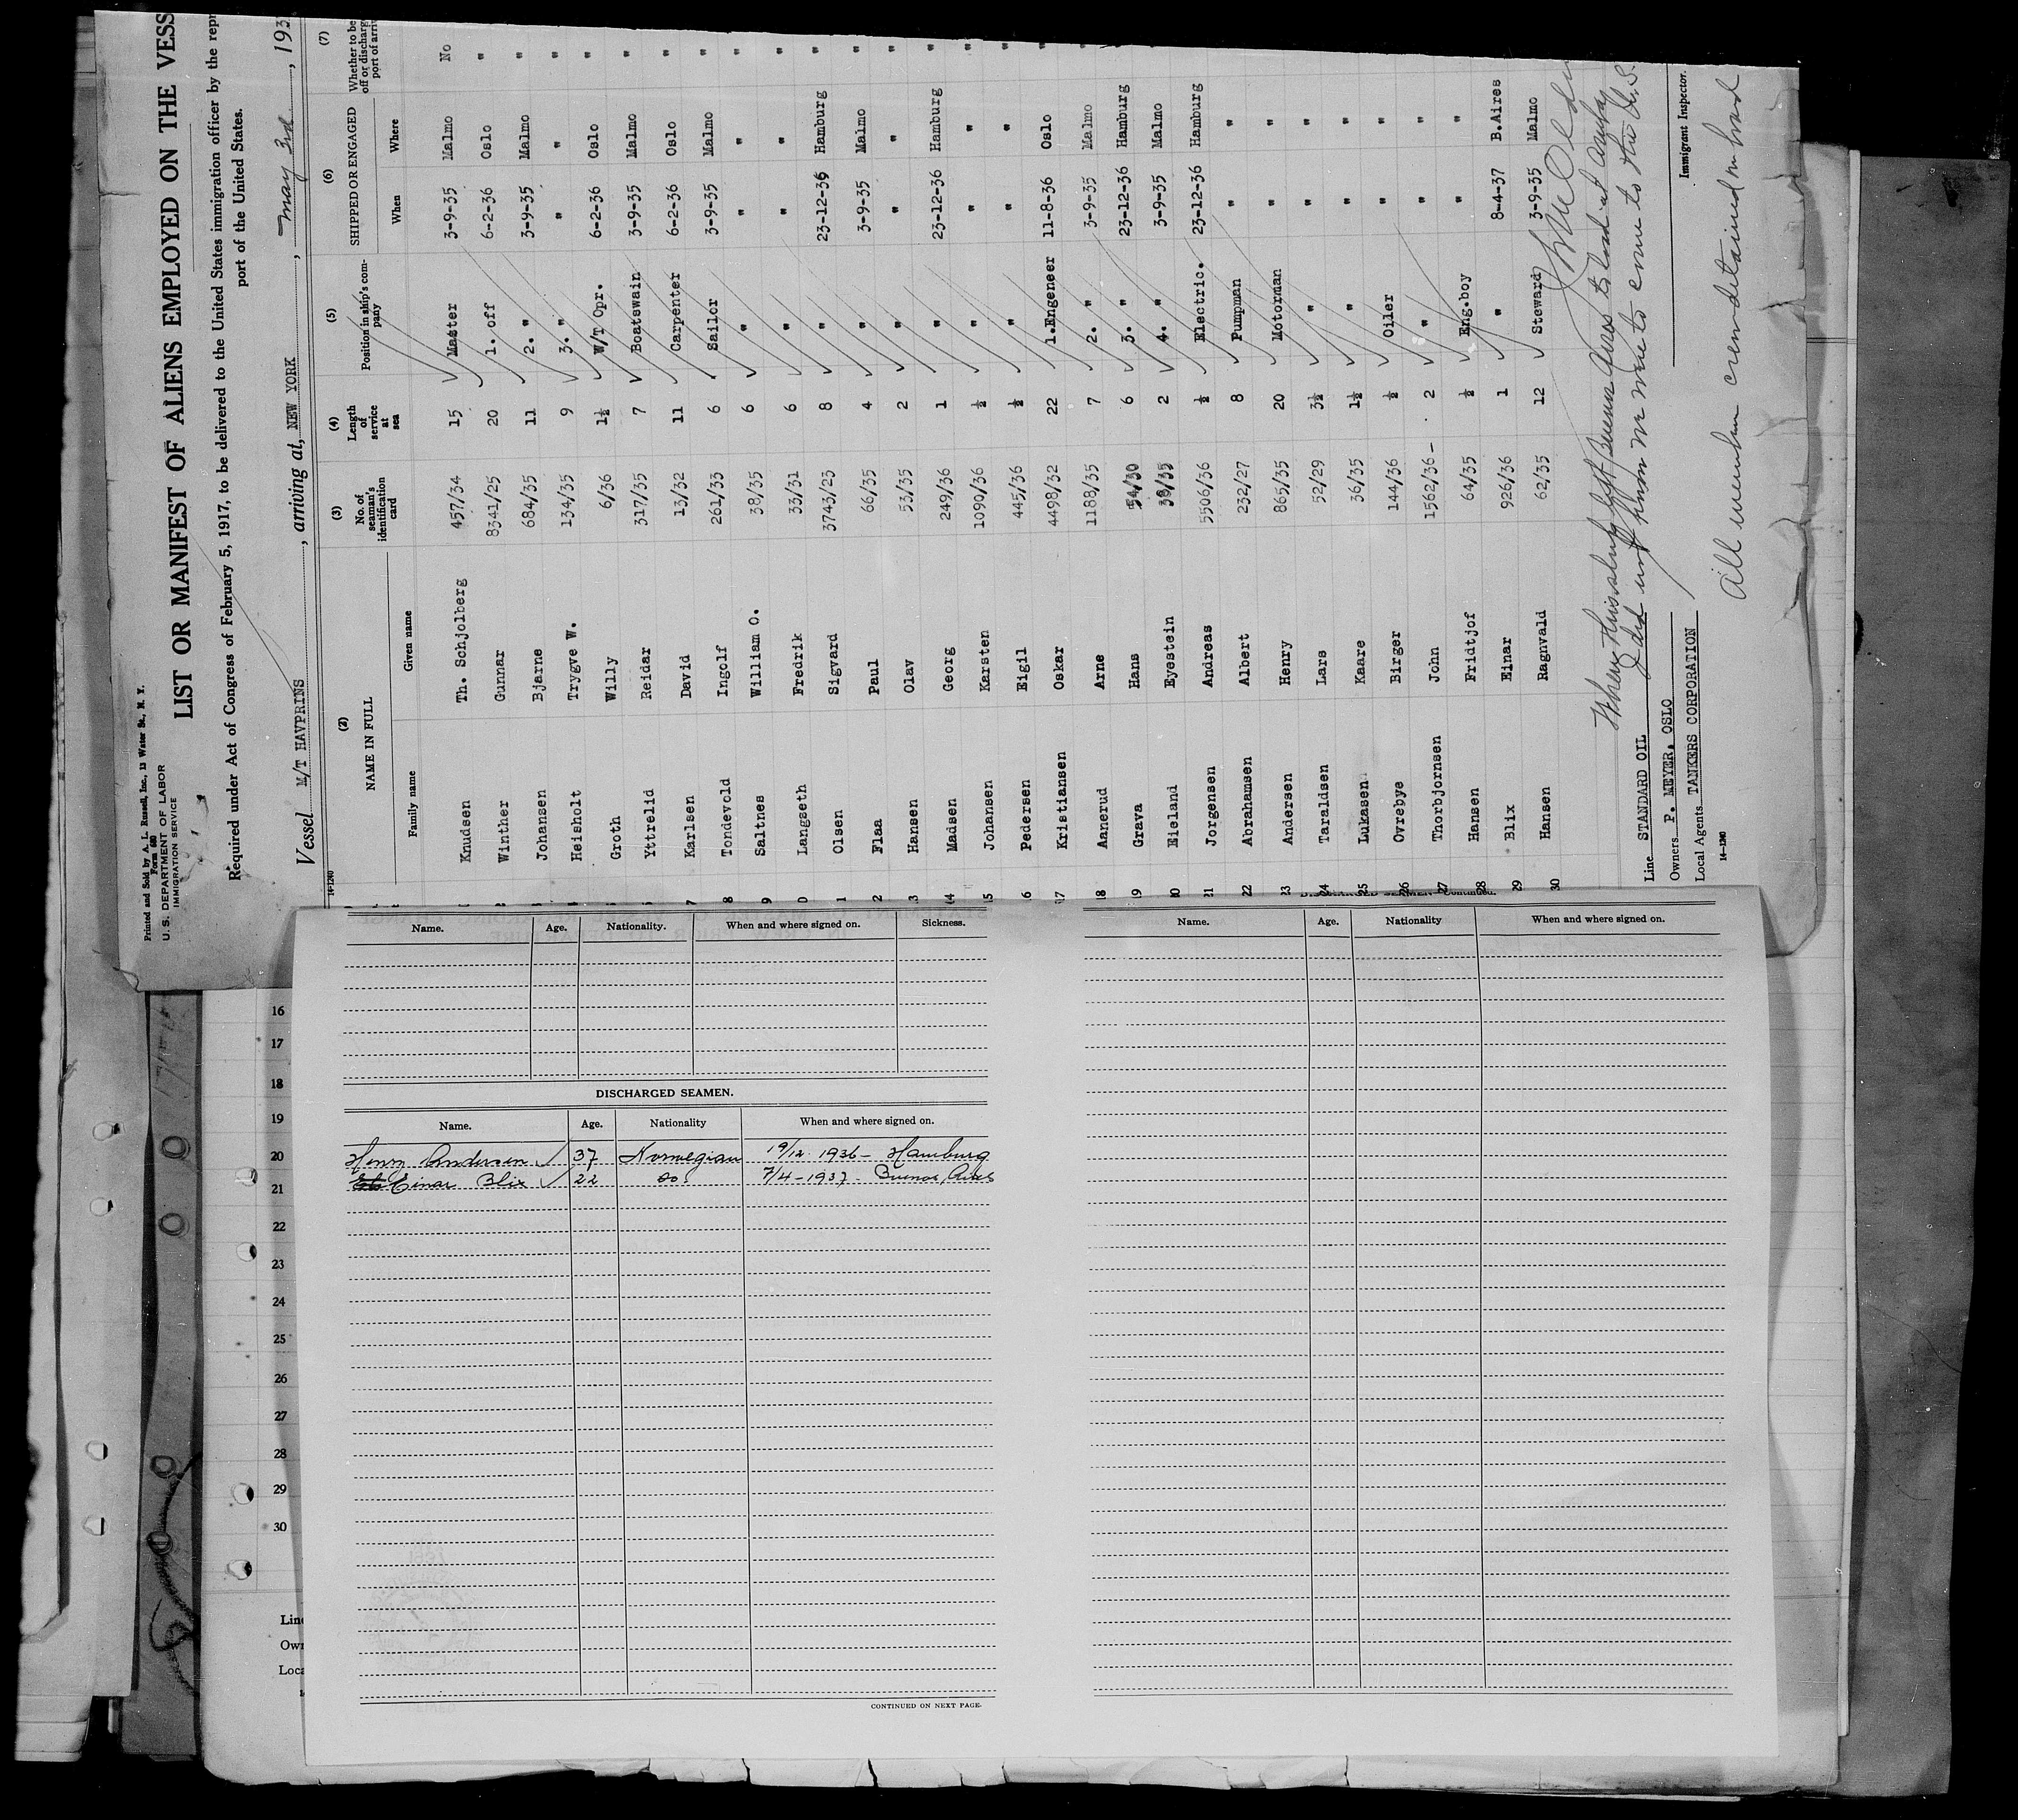 Printed and Sold by A. L. Russell, Inc., 13 Water St., N. Y.
Form 680
U. S. DEPARTMENT OF LABOR
IMMIGRATION SERVICE
LIST OR MANIFEST OF ALIENS EMPLOYED ON THE VESS
Required under Act of Congress of February 5, 1917, to be delivered to the United States immigration officer by the repr
port of the United States.
Vessel M/T HAVPRINS, arriving at, NEW YORK, May 3rd, 193
14-1240
(2) (3) (4) (5) (6) (7)
NAME IN FULL No. of seaman's identification card Length of service at sea Position in ship's company SHIPPED OR ENGAGED Whether to be off or discharg port of arriv
Family name Given name When Where
Knudsen Th. Schjolberg 457/34 15 Master 3-9-35 Malmo No
Winther Gunnar 8341/25 20 1. off 6-2-36 Oslo "
Johansen Bjarne 684/35 11 2. " 3-9-35 Malmo "
Heisholt Trygve W. 134/35 9 3. " " " "
Groth Willy 6/36 1½ W/T Opr. 6-2-36 Oslo "
Yttrelid Reidar 317/35 7 Boatswain 3-9-35 Malmo "
7 Karlsen David 13/32 11 Carpenter 6-2-36 Oslo "
8 Tondevold Ingolf 261/33 6 Sailor 3-9-35 Malmo "
9 Saltnes William O. 38/35 6 " " " "
0 Langseth Fredrik 33/31 6 " " " "
1 Olsen Sigvard 3743/23 8 " 23-12-36 Hamburg "
2 Flaa Paul 66/35 4 " 3-9-35 Malmo "
13 Hansen Olav 53/35 2 " " " "
14 Madsen Georg 249/36 1 " 23-12-36 Hamburg "
15 Johansen Karsten 1090/36 ½ " " " "
16 Pedersen Eigil 445/36 ½ " " " "
17 Kristiansen Oskar 4498/32 22 1.Engeneer 11-8-36 Oslo "
18 Aanerud Arne 1188/35 7 2. " 3-9-35 Malmo "
19 Grava Hans 54/30 6 3. " 23-12-36 Hamburg "
20 Eieland Eyestein 38/35 2 4. " 3-9-35 Malmo "
21 Jorgensen Andreas 5506/36 ½ Electric. 23-12-36 Hamburg
22 Abrahamsen Albert 232/27 8 Pumpman " "
23 Andersen Henry 865/35 20 Motorman " "
24 Taraldsen Lars 52/29 3½ " " "
25 Lukasen Kaare 36/35 1½ " " "
26 Ovrebye Birger 144/36 ½ Oiler " "
27 Thorbjornsen John 1562/36 - 2 " " "
28 Hansen Fridtjof 64/35 ½ Eng.boy " "
29 Blix Einar 926/36 1 " 8-4-37 B.Aires
30 Hansen Ragnvald 62/35 12 Steward 3-9-35 Malmo
When this ship left Buenos Aires to load at Aruba
I did not know we were to come to the U.S.
Line STANDARD OIL
Owners P. MEYER, OSLO
Local Agents TANKERS CORPORATION
Immigrant Inspector.
14-1240
All members crew detained on board
Name. Age. Nationality. When and where signed on. Sickness.
DISCHARGED SEAMEN.
Name. Age. Nationality When and where signed on.
Henry Andersen 37 Norwegian 19/12 1936 - Hamburg
Einar Blix 22 do. 7/4 - 1937 - Buenos Aires
CONTINUED ON NEXT PAGE.
Name. Age. Nationality When and where signed on.
16
17
18
19
20
21
22
23
24
25
26
27
28
29
30
Line
Own
Loca